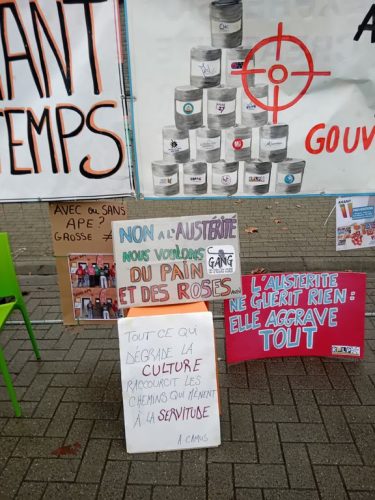 ANT
TEMPS
A
GOUV
AVEC OU SANS
APE ?
GROSSE ≠
NON À L'AUSTÉRITÉ
NOUS VOULONS
DU PAIN
ET DES ROSES
GANG
L'AUSTÉRITÉ
NE GUÉRIT RIEN :
ELLE AGGRAVE
TOUT
TOUT CE QUI
DÉGRADE LA
CULTURE
RACCOURCIT LES
CHEMINS QUI MÈNENT
À LA SERVITUDE
A. CAMUS